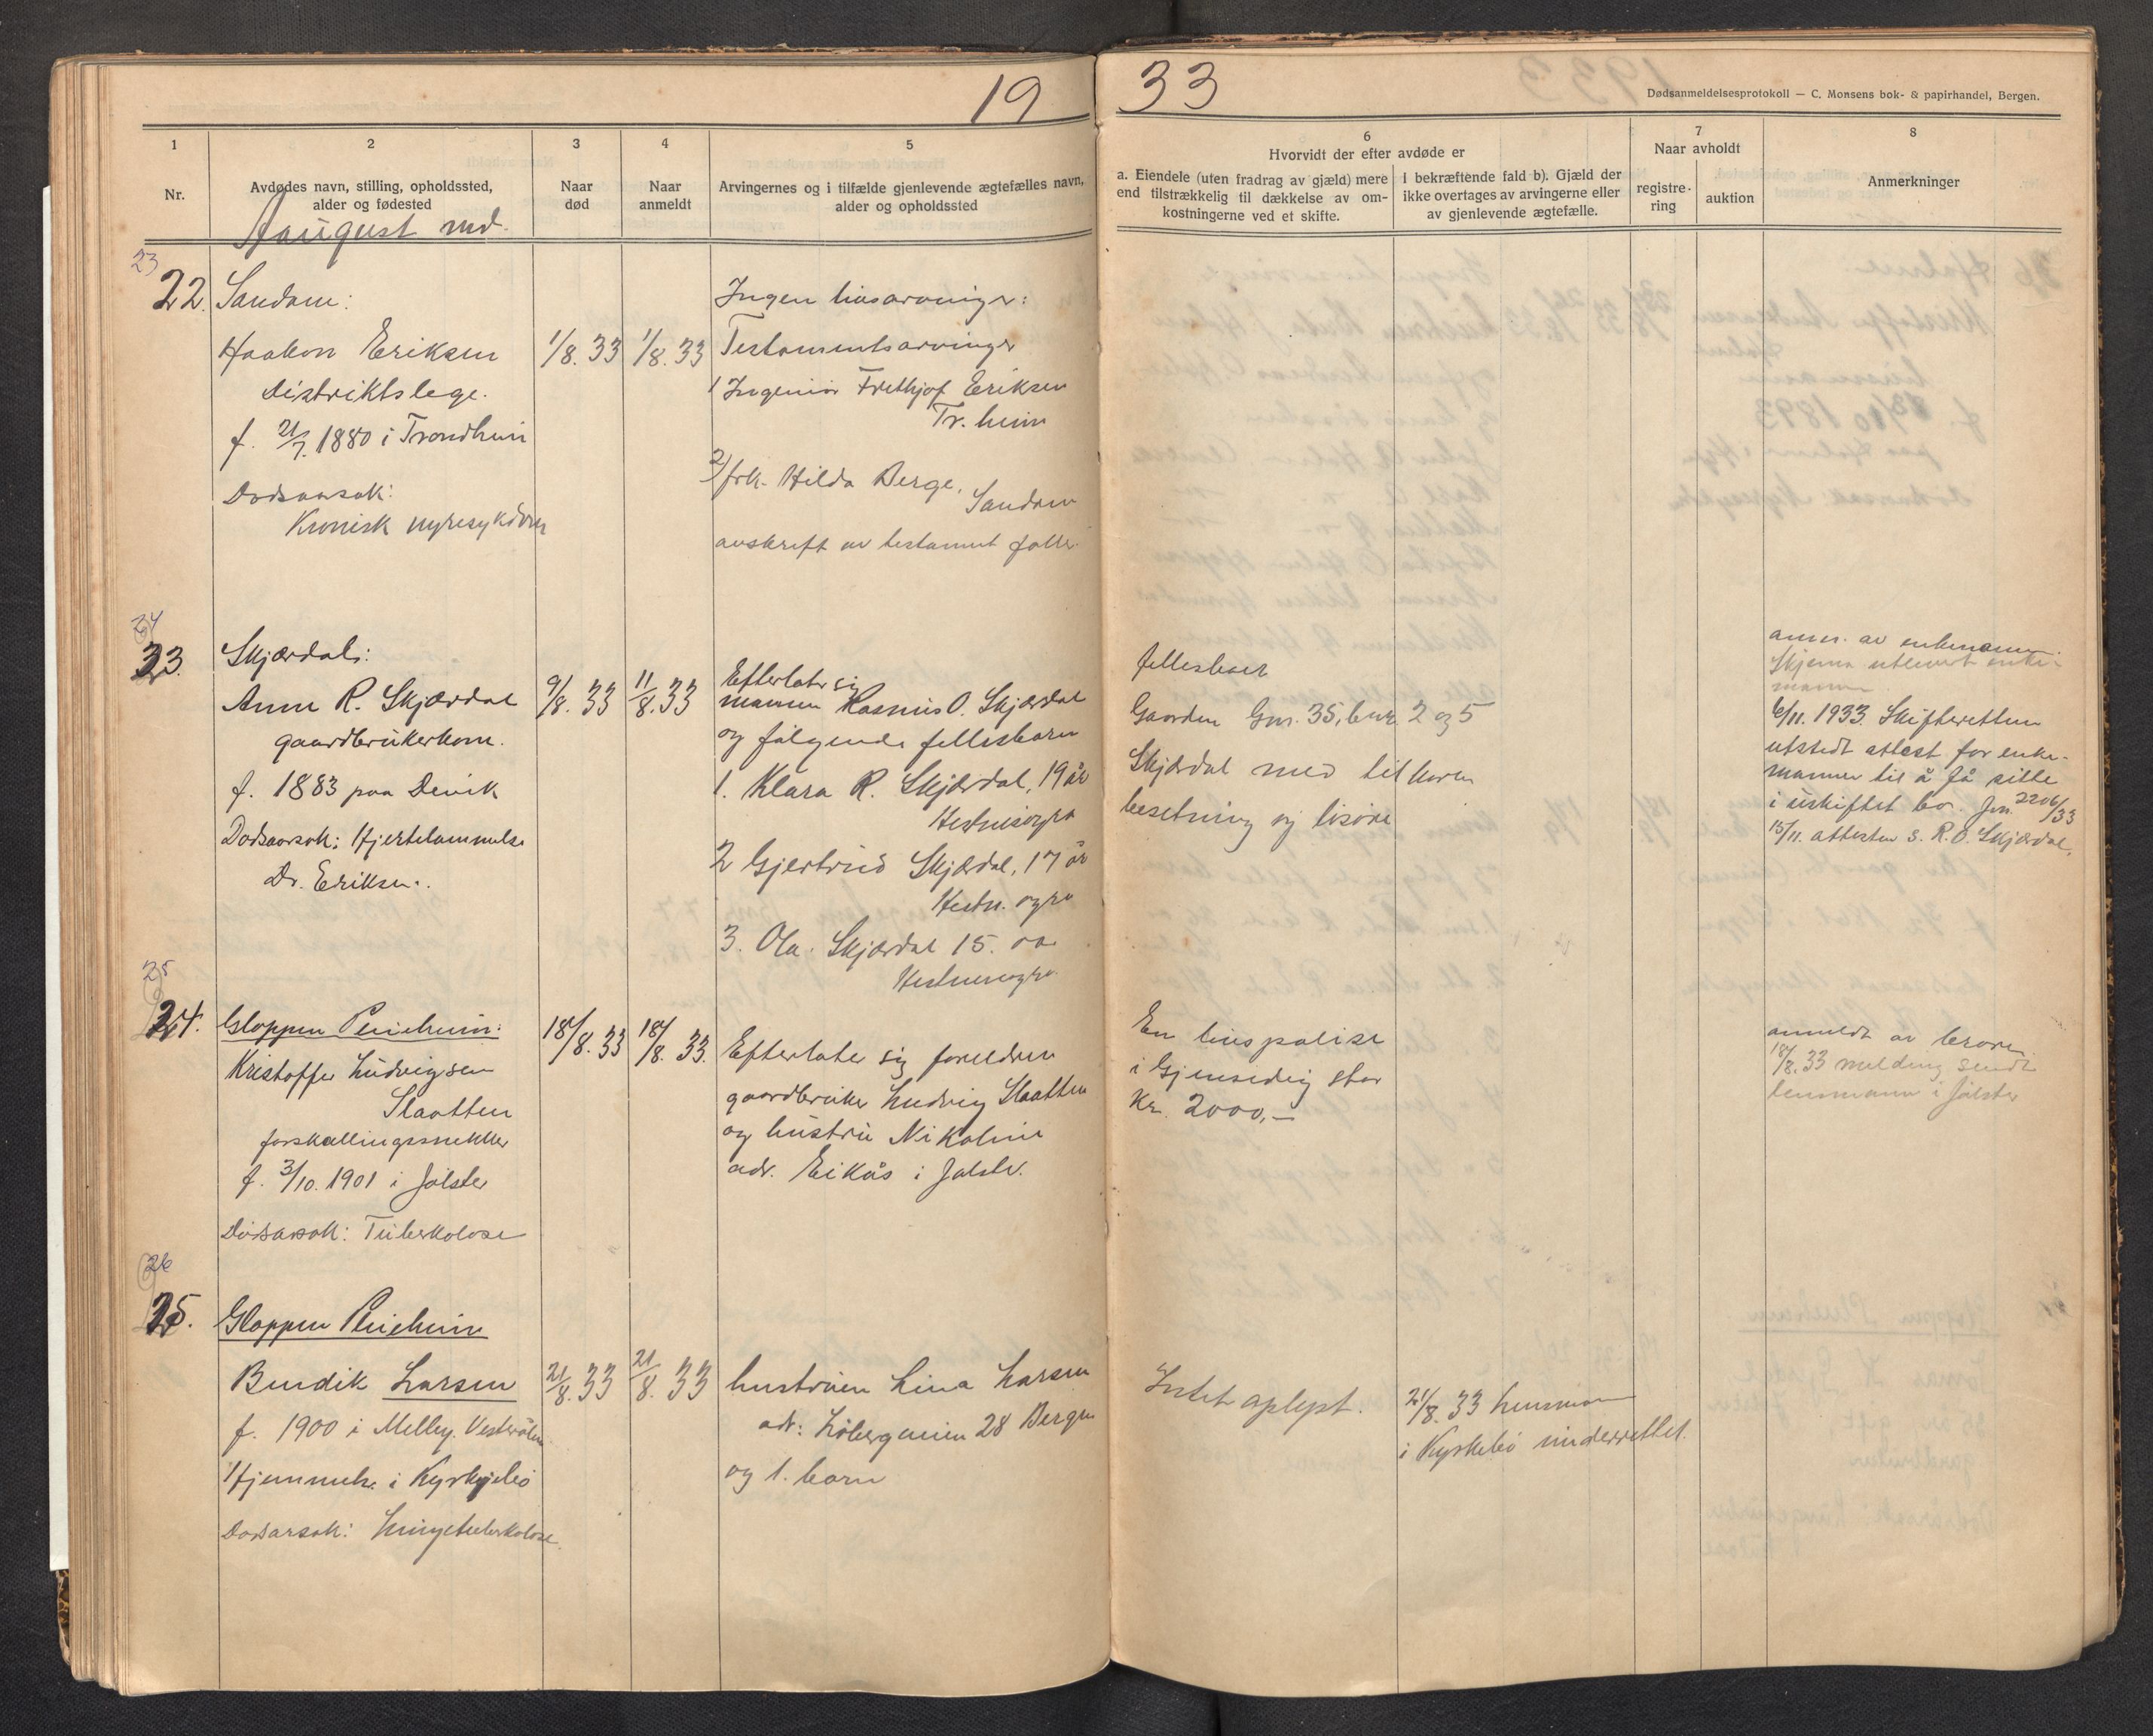 19
33
Dødsanmeldelsesprotokoll — C. Monsens bok- & papirhandel, Bergen.
1
Nr.
2
Avdødes navn, stilling, opholdssted,
alder og fødested
3
Naar
død
4
Naar
anmeldt
5
Arvingernes og i tilfælde gjenlevende ægtefælles navn,
alder og opholdssted
6
Hvorvidt der efter avdøde er
a. Eiendele (uten fradrag av gjæld) mere
end tilstrækkelig til dækkelse av om-
kostningerne ved et skifte.
I bekræftende fald b). Gjæld der
ikke overtages av arvingerne eller
av gjenlevende ægtefælle.
7
Naar avholdt
registre-
ring
auktion
8
Anmerkninger
August md.
23
22.
Sandane:
Haakon Eriksen
distriktslege.
f. 21/7. 1880 i Trondheim
Dødsaarsak:
Kronisk nyresykdom
1/8. 33
1/8. 33
Ingen livsarvinger:
Testamentsarvinger
1 Ingeniør Frethjof Eriksen
Tr. heim
2/ frk. Hilda Berge,
Sandane
avskrift av testament føller
24
23.
Skjærdal:
Anne R. Skjærdal
gaardbrukerkone.
f. 1883 paa Devik
Dødsaarsak: Hjertelammelse
Dr. Eriksen.
9/8. 33
11/8. 33
Efterlater sig
mannen Rasmus O. Skjærdal
og følgende fellesbarn
1. Klara R. Skjærdal, 19 år
Hestnesøyra
2 Gjertrud Skjærdal, 17 år
Hestn. øyra
3. Ola Skjærdal 15. aa
Hestnesøyra
fellesboet
Gaarden Gnr. 35, bnr. 2 og 5
Skjærdal med tilhøren
besetning og løsøre
anm. av enkemann.
Skjema utlevert enke-
mannen
6/11. 1933 Skifteretten
utstedt attest for enke-
mannen til å få sitte
i uskiftet bo. Jnr. 2206/33
15/11. attesten s. R. O. Skjærdal.
25
24.
Gloppen Pleieheim:
Kristoffer Ludvigsen
Slaatten
forskallingssnekker
f. 3/10. 1901 i Jølster
Dødsarsak: Tuberkolose
18/8. 33
18/8. 33.
Efterlate sig foreldrene
gaardbruker Ludvig Slaatten
og hustru Nikoline
adr. Eikås i Jølster.
En livspolise
i Gjensidig stor
Kr. 2000,—
anmeldt av broren.
18/8. 33 melding sendt
lensmann i Jølster
26
25.
Gloppen Pleieheim
Bendik Larsen
f. 1900 i Melbøy. Vesterålen
Hjemmeh. i Kyrkjebø
Dødsarsak: Lungetuberkolose.
21/8. 33
21/8. 33
hustruen Lina Larsen
adr: Løbergsveien 28 Bergen
og 1. barn
Intet oplyst.
21/8. 33 lensmann
i Kyrkebø underrettet.